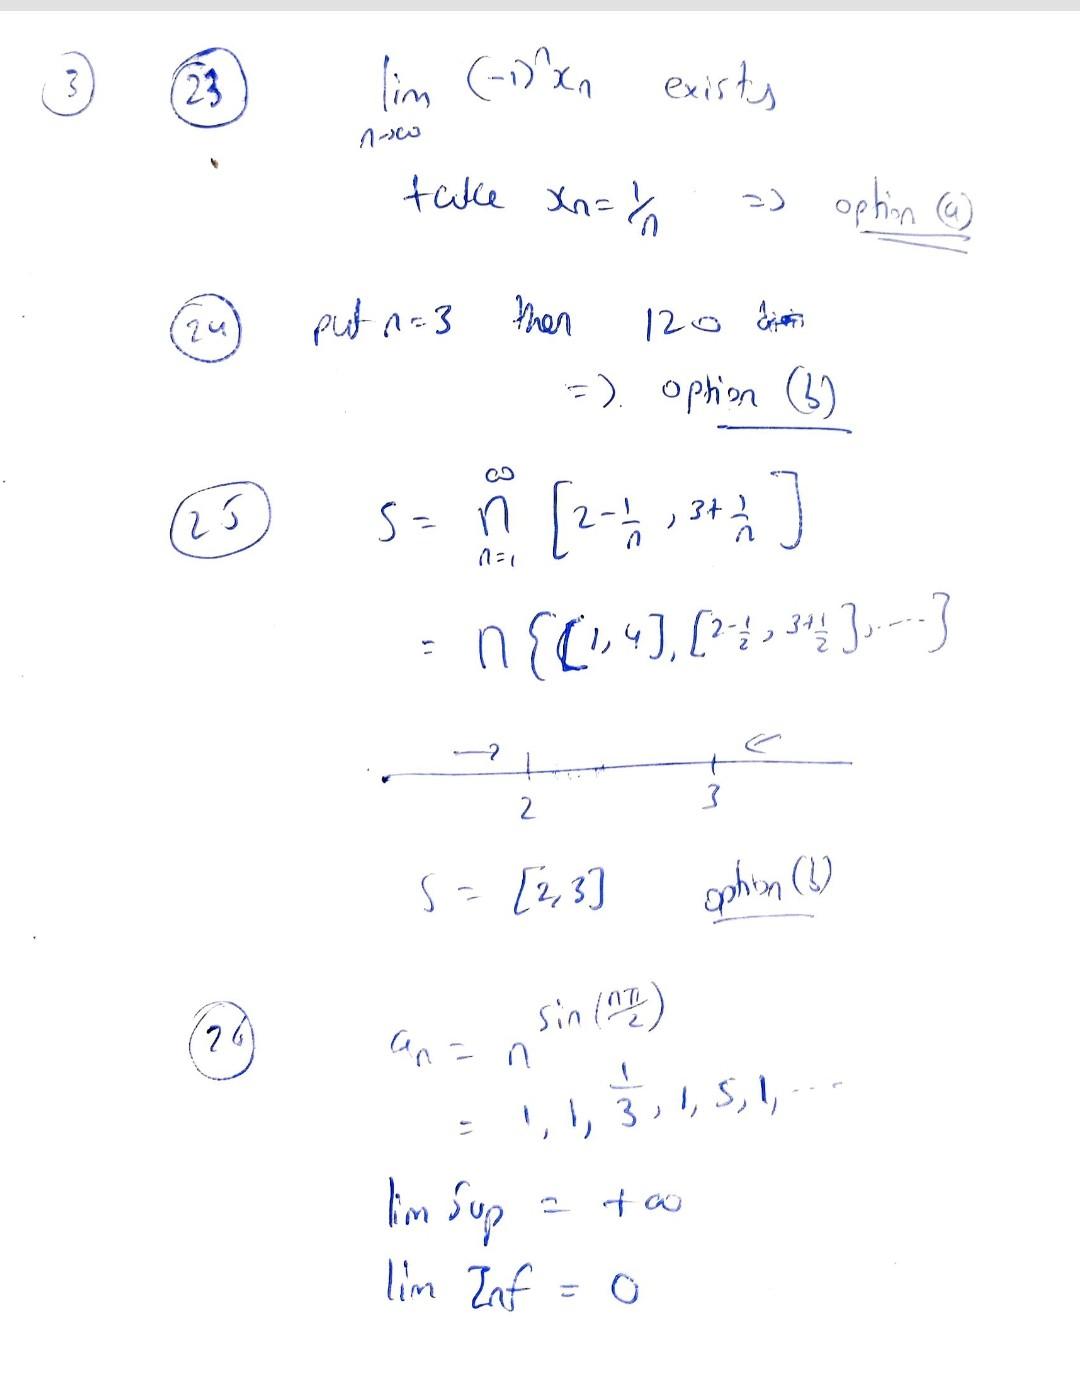 3 23 lim (-1)^n xn exists
n→∞
take xn = 1/n => option (a)
24 put n=3 then 120
=> option (b)
25 S = ∩ n=1 ∞ [2-1/n, 3+1/n]
= ∩{[1,4], [2-1/2, 3+1/2],....}
→ ←
2 3
S = [2,3] option (b)
26 an = n^sin(nπ/2)
= 1, 1, 1/3, 1, 5, 1, ....
lim Sup = +∞
lim Inf = 0